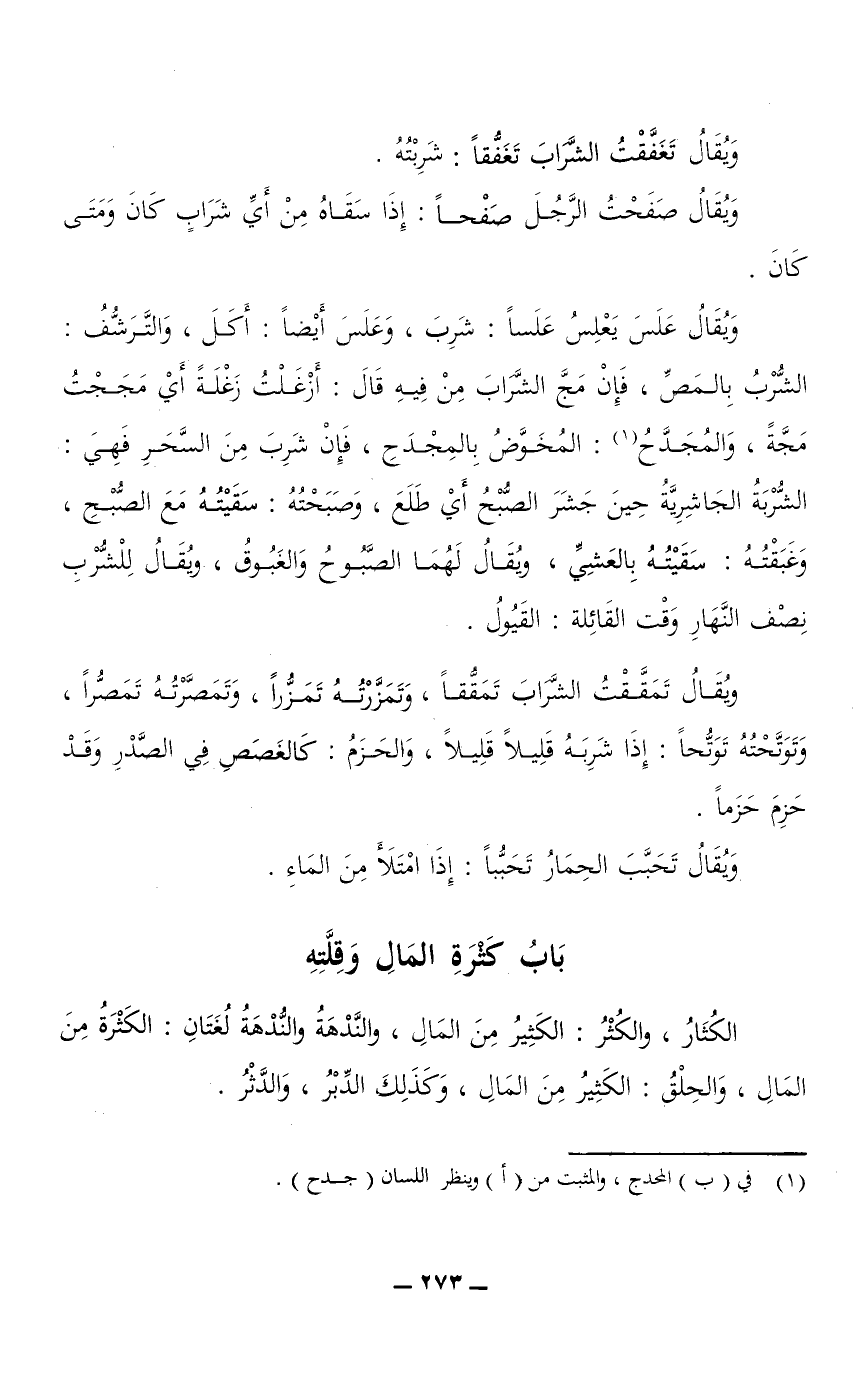 وَيُقَالُ تَغَفَّقْتُ الشَّرَابَ تَغَفُّقاً : شَرِبْتُهُ .
وَيُقَالُ صَفَحْتُ الرَّجُلَ صَفْحاً : إِذَا سَقَاهُ مِنْ أَيِّ شَرَابٍ كَانَ وَمَتَى
كَانَ .
وَيُقَالُ عَلَسَ يَعْلِسُ عَلَساً : شَرِبَ ، وَعَلَسَ أَيْضاً : أَكَلَ ، وَالتَّرَشُّفُ :
الشُّرْبُ بِالمَصِّ ، فَإِنْ مَجَّ الشَّرَابَ مِنْ فِيهِ قَالَ : أَزْغَلْتُ زَغْلَةً أَيْ مَجَجْتُ
مَجَّةً ، وَالمُجَدَّحُ(١) : المُخَوَّضُ بِالمِجْدَحِ ، فَإِنْ شَرِبَ مِنَ السَّحَرِ فَهِيَ :
الشُّرْبَةُ الجَاشِرِيَّةُ حِينَ جَشَرَ الصُّبْحُ أَيْ طَلَعَ ، وَصَبَحْتُهُ : سَقَيْتُهُ مَعَ الصُّبْحِ ،
وَغَبَقْتُهُ : سَقَيْتُهُ بِالعَشِيِّ ، ويُقَالُ لَهُمَا الصَّبُوحُ وَالغَبُوقُ ، ويُقَالُ لِلْشُّرْبِ
نِصْف النَّهَارِ وَقْت القَائِلة : القَيُولُ .
ويُقَالُ تَمَقَّقْتُ الشَّرَابَ تَمَقُّقاً ، وَتَمَزَّرْتُهُ تَمَزُّراً ، وَتَمَصَّرْتُهُ تَمَصُّراً ،
وَتَوَتَّحْتُهُ تَوَتُّحاً : إِذَا شَرِبَهُ قَلِيلاً قَلِيلاً ، وَالحَزَمُ : كَالغَصَصِ فِي الصَّدْرِ وَقَدْ
حَزِمَ حَزَماً .
وَيُقَالُ تَحَبَّبَ الحِمَارُ تَحَبُّباً : إِذَا امْتَلَأَ مِنَ المَاءِ .
بَابُ كَثْرَةِ المَالِ وَقِلَّتِهِ
الكُثَارُ ، والكُثْرُ : الكَثِيرُ مِنَ المَالِ ، والنَّدْهَةُ والنُّدْهَةُ لُغَتَانِ : الكَثْرَةُ مِنَ
المَالِ ، وَالحِلْقُ : الكَثِيرُ مِنَ المَالِ ، وَكَذَلِكَ الدِّبْرُ ، وَالدَّثْرُ .
(١) في ( ب ) المحدج ، والمثبت من ( أ ) وينظر اللسان ( جدح ) .
— ٢٧٣ —